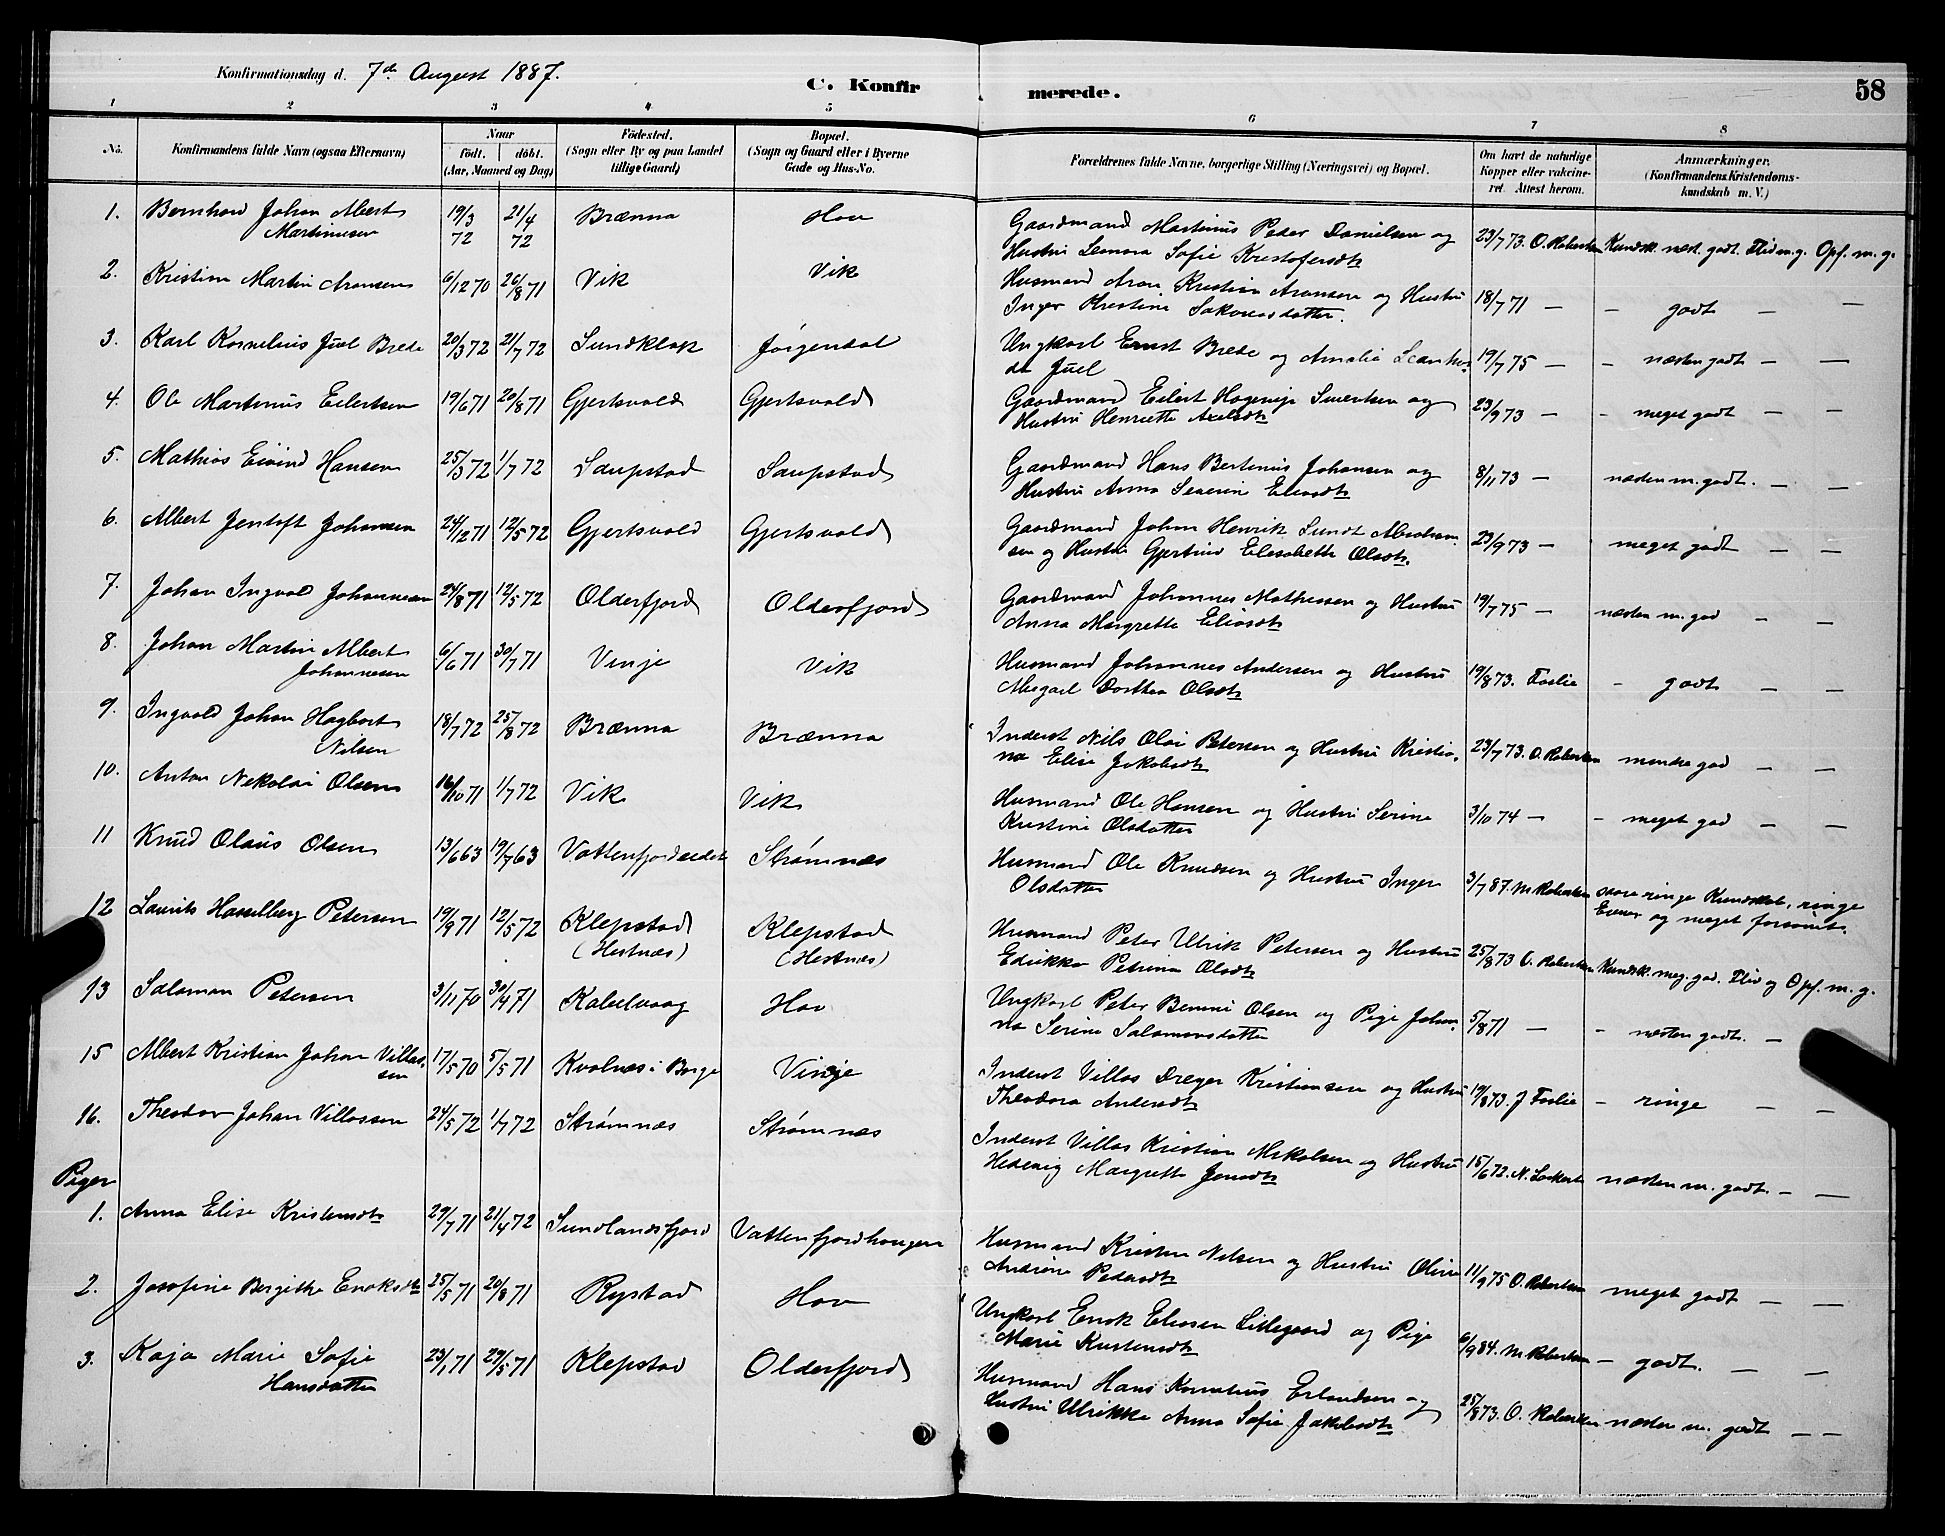 Konfirmationsdag d. 7de August 1887.
C. Konfirmerede.
58
1 2 3 4 5 6 7 8
No.
Konfirmandens fulde Navn (ogsaa Efternavn)
Naar
födt. | döbt.
(Aar, Maaned og Dag)
Födested.
(Sogn eller By og paa Landet
tillige Gaard)
Bopæl.
(Sogn og Gaard eller i Byerne
Gade og Hus-No.
Forældrenes fulde Navne, borgerlige Stilling (Næringsvei) og Bopæl.
Om havt de naturlige
Kopper eller vakcine-
ret. Attest herom.
Anmærkninger.
(Konfirmandens Kristendoms-
kundskab m. V.)
1. Bernhard Johan Albert Martinusen 19/3 72 21/4 72 Brænna Hov
Gaardmand Martinus Peder Danielsen og
Hustru Lenora Sofie Kristofersdtr
23/7 73. O. Robertsen Kundsk. næst. godt. Flid m.g. Opf. m. g.
2. Kristian Martin Aronsen 6/12 70 26/8 71 Vik Vik
Husmand Aron Kristian Aronsen og Hustru
Inger Kristine Sakariasdatter.
18/7 71 — — godt — —
3. Karl Kornelius Juel Brede 20/3 72 21/7 72 Sundklak Jørgendal
Ungkarl Ernst Brede og Amalie Leonhar-
da Juel
19/7 75 — — næsten godt — —
4. Ole Martinus Eilertsen 19/6 71 20/8 71 Gjertsvold Gjertsvold
Gaardmand Eilert Hagerup Sivertsen og
Hustru Henriette Axelsdtr
23/9 73 — — meget godt — —
5. Mathias Eivind Hansen 25/3 72 1/7 72 Saupstad Saupstad
Gaardmand Hans Bertinus Johansen og
Hustru Anna Severine Eliasdtr
8/11 73 — næsten m. godt. — —
6. Albert Jentoft Johansen 24/12 71 12/5 72 Gjertsvold Gjertsvold
Gaardmand Johan Henrik Sundt Abraham-
sen og Hustru Gjertine Elisabeth Olsdtr.
23/9 73 — - meget godt — —
7. Johan Ingvald Johannesen 24/8 71 12/5 72 Olderfjord Olderfjord
Gaardmand Johannes Mathesen og Hustru
Anna Margrethe Eliasdtr
19/7 75 — næsten m. god — —
8. Johan Martin Albert Johannesen 6/6 71 30/7 71 Vinje Vik
Husmand Johannes Andersen og Hustru
Abigael Dorthea Olsdtr
19/8 73. Foslie - godt — —
9. Ingvald Johan Hagbart Nilsen 18/7 72 25/8 72 Brænna Brænna
Inderst Nils Olai Petersen og Hustru Kristia-
na Elise Jakobsdtr
23/7 73. O. Robertsen mindre god — —
10. Anton Nekolai Olsen 16/10 71 1/7 72 Vik Vik
Husmand Ole Hansen og Hustru Serine
Kristine Olsdatter
3/10 74 — - meget god — —
11 Knud Olaus Olsen 13/6 63 19/7 63 Vattenfjordeidet Strømnæs
Husmand Ole Knudsen og Hustru Inger
Olsdatter
3/7 87. M Robertsen saare ringe Kundskab, ringe
Evner og meget forsømt.
12 Laurits Hasselberg Petersen 19/9 71 12/5 72 Klepstad (Hestnæs) Klepstad (Hestnæs)
Husmand Peter Ulrik Petersen og Hustru
Edrikke Petrina Olsdtr
25/8 73 O. Robertsen Kundsk. meg. god. Flid og Opf. m. g.
13 Salamon Petersen 3/11 70 30/4 71 Kabelvaag Hov
Ungkarl Peter Benoni Olsen og Pige Johan-
na Serine Salamonsdatter
5/8 71 — - næsten godt. —
15 Albert Kristian Johan Villas-
sen 17/5 70 5/5 71 Kvalnæs i Borge Vinje
Inderst Villas Dreyer Kristiansen og Hustru
Theodora Andersdtr
19/8 73. J Foslie — ringe — —
16. Theodor Johan Villassen 24/5 72 1/7 72 Strømnæs Strømnæs
Inderst Villas Kristian Nikolsen og Hustru
Hedevig Margrethe Jonsdtr
15/6 72. N. Lockert næsten m. godt. — —
Piger
1. Anna Elise Kristensdtr 29/7 71 21/4 72 Sundlandsfjord Vattenfjordhaugen
Husmand Kristen Nilsen og Hustru Oline
Andrine Pedersdtr
11/9 75 O. Robertsen meget godt — —
2. Josefine Bergithe Enoksdtr 25/5 71 20/8 71 Rystad Hov
Ungkarl Enok Eliasen Lillegaard og Pige
Marie Kristensdtr
6/9 84. M Robertsen — godt. — —
3. Kaja Marie Sofie Hansdatter 23/1 71 29/5 71 Klepstad Olderfjord
Husmand Hans Kornelius Erlandsen og
Hustru Ulrikke Anna Sofie Jakobsdtr
25/8 73. O. Robertsen næsten m. godt — —